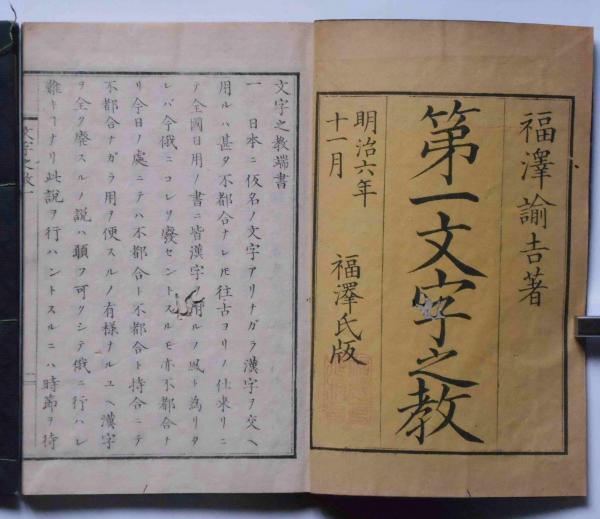 福澤諭吉著
第一文字之教
明治六年
十一月
福澤氏版
文字之教端書
一 日本ニ仮名ノ文字アリナガラ漢字ヲ交ヘ
用ルハ甚タ不都合ナレ𪜈往古ヨリノ仕来リニ
テ全國日用ノ書ニ皆漢字ヲ用ルノ風ト為リタ
レバ今俄ニコレヲ廢セントスルモ亦不都合ナ
リ今日ノ處ニテハ不都合ト不都合ト持合ニテ
不都合ナガラ用ヲ便スルノ有様ナルユヘ漢字
ヲ全ク廃スルノ説ハ願フ可クシテ俄ニ行ハレ
難キ𪜀ナリ此説ヲ行ハントスルニハ時節ヲ待
文字之教一